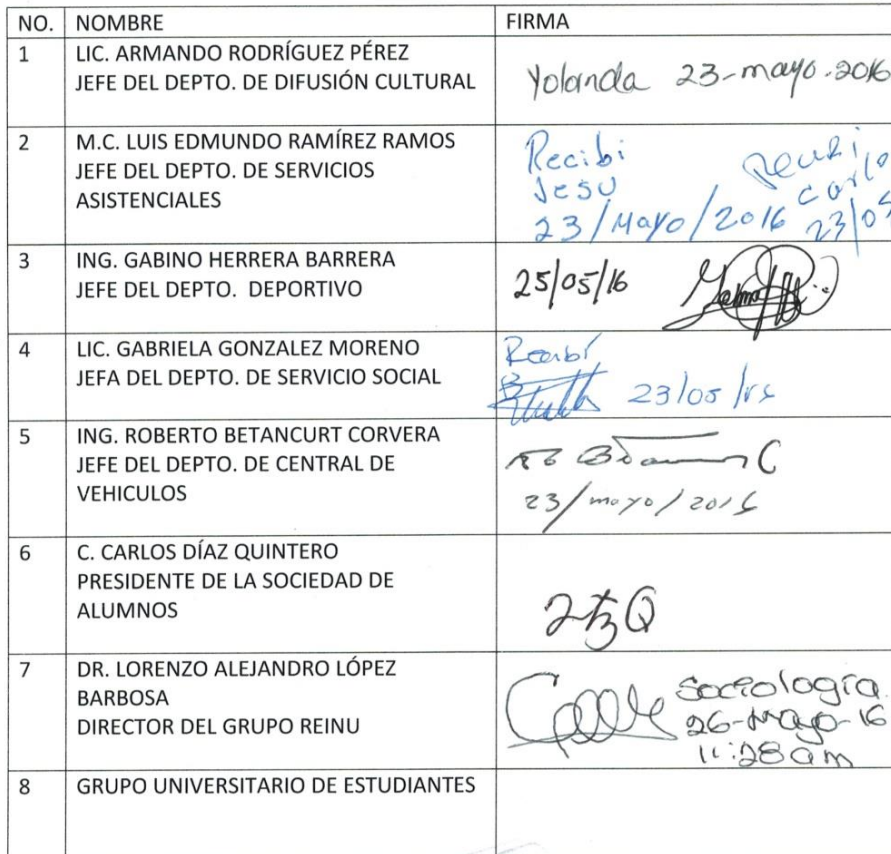 NO. NOMBRE FIRMA
1 LIC. ARMANDO RODRÍGUEZ PÉREZ
JEFE DEL DEPTO. DE DIFUSIÓN CULTURAL
Yolanda 23-mayo-2016
2 M.C. LUIS EDMUNDO RAMÍREZ RAMOS
JEFE DEL DEPTO. DE SERVICIOS
ASISTENCIALES
Recibi
Jesu
23/Mayo/2016
3 ING. GABINO HERRERA BARRERA
JEFE DEL DEPTO. DEPORTIVO
25/05/16
4 LIC. GABRIELA GONZALEZ MORENO
JEFA DEL DEPTO. DE SERVICIO SOCIAL
Recibí
5 ING. ROBERTO BETANCURT CORVERA
JEFE DEL DEPTO. DE CENTRAL DE
VEHICULOS
23/mayo/2016
6 C. CARLOS DÍAZ QUINTERO
PRESIDENTE DE LA SOCIEDAD DE
ALUMNOS
7 DR. LORENZO ALEJANDRO LÓPEZ
BARBOSA
DIRECTOR DEL GRUPO REINU
Sociología
26-Mayo-16
11:28am
8 GRUPO UNIVERSITARIO DE ESTUDIANTES